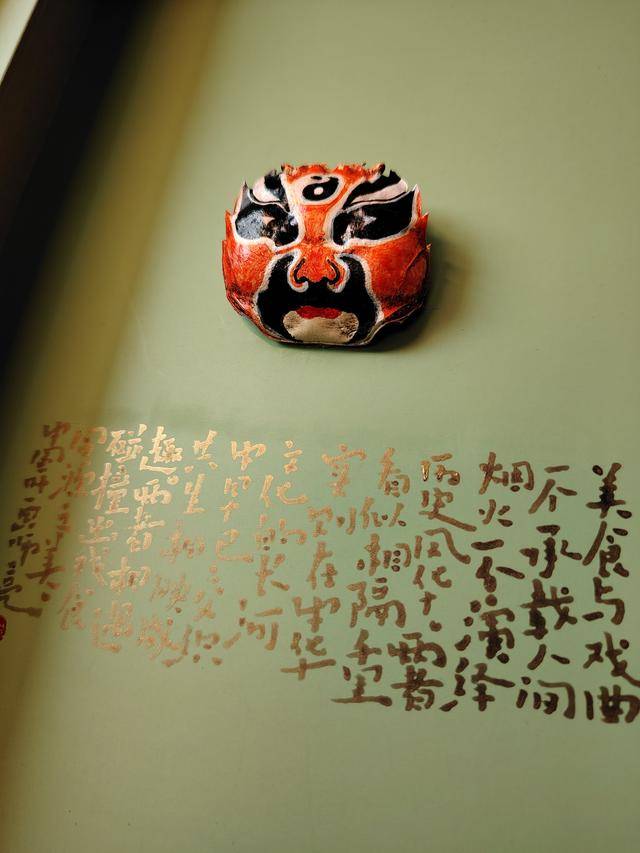 美食与戏曲
一个承载人间
烟火一个演绎
历史风华。两者
看似相隔千里
实则在中华
文化的长河
中早已交织
共生相映成
趣。两者相遇
碰撞出戏食
同源之